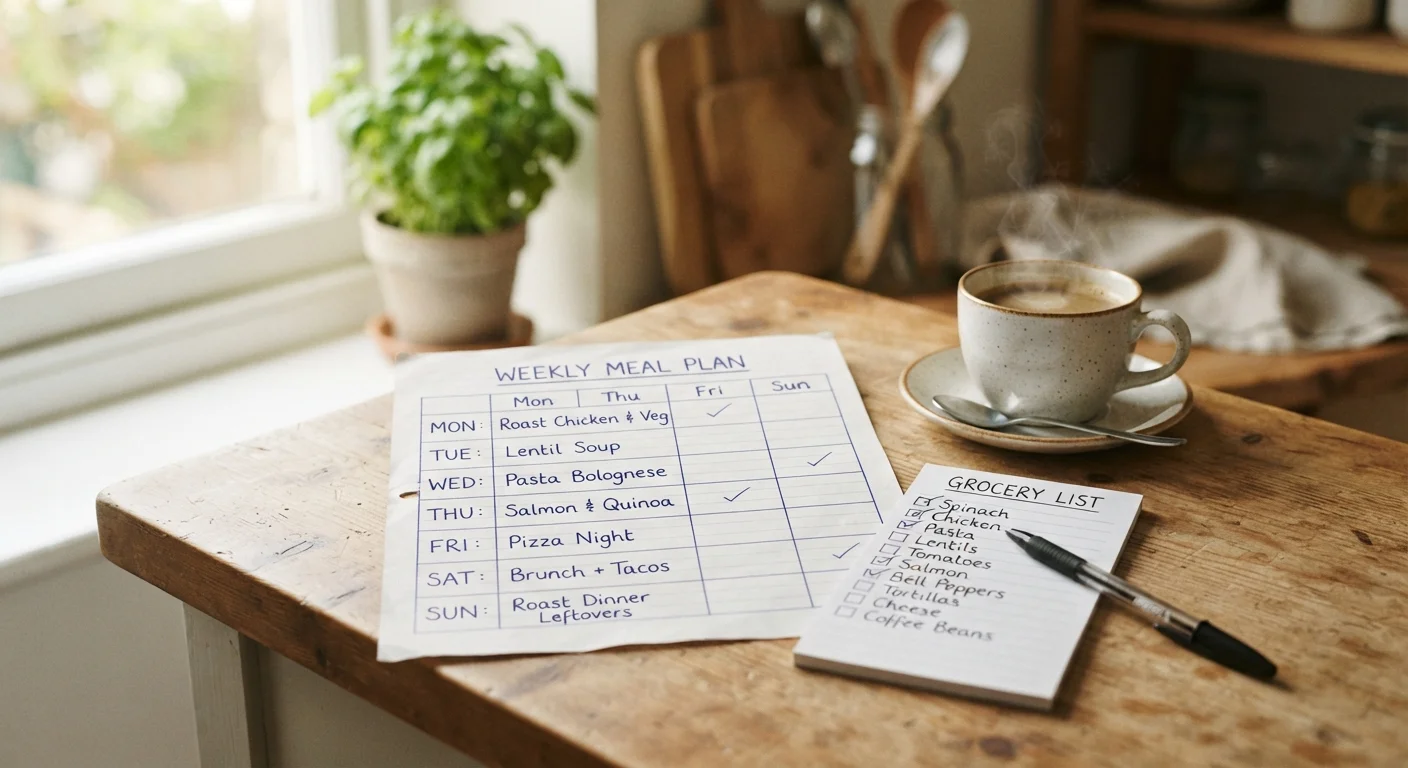 WEEKLY MEAL PLAN
Mon Thu Fri Sun
MON: Roast Chicken & Veg ✓
TUE: Lentil Soup
WED: Pasta Bolognese ✓
THU: Salmon & Quinoa ✓
FRI: Pizza Night
SAT: Brunch + Tacos ✓
SUN: Roast Dinner
Leftovers
GROCERY LIST
Spinach
Chicken
Pasta
Lentils
Tomatoes
Salmon
Bell Peppers
Tortillas
Cheese
Coffee Beans